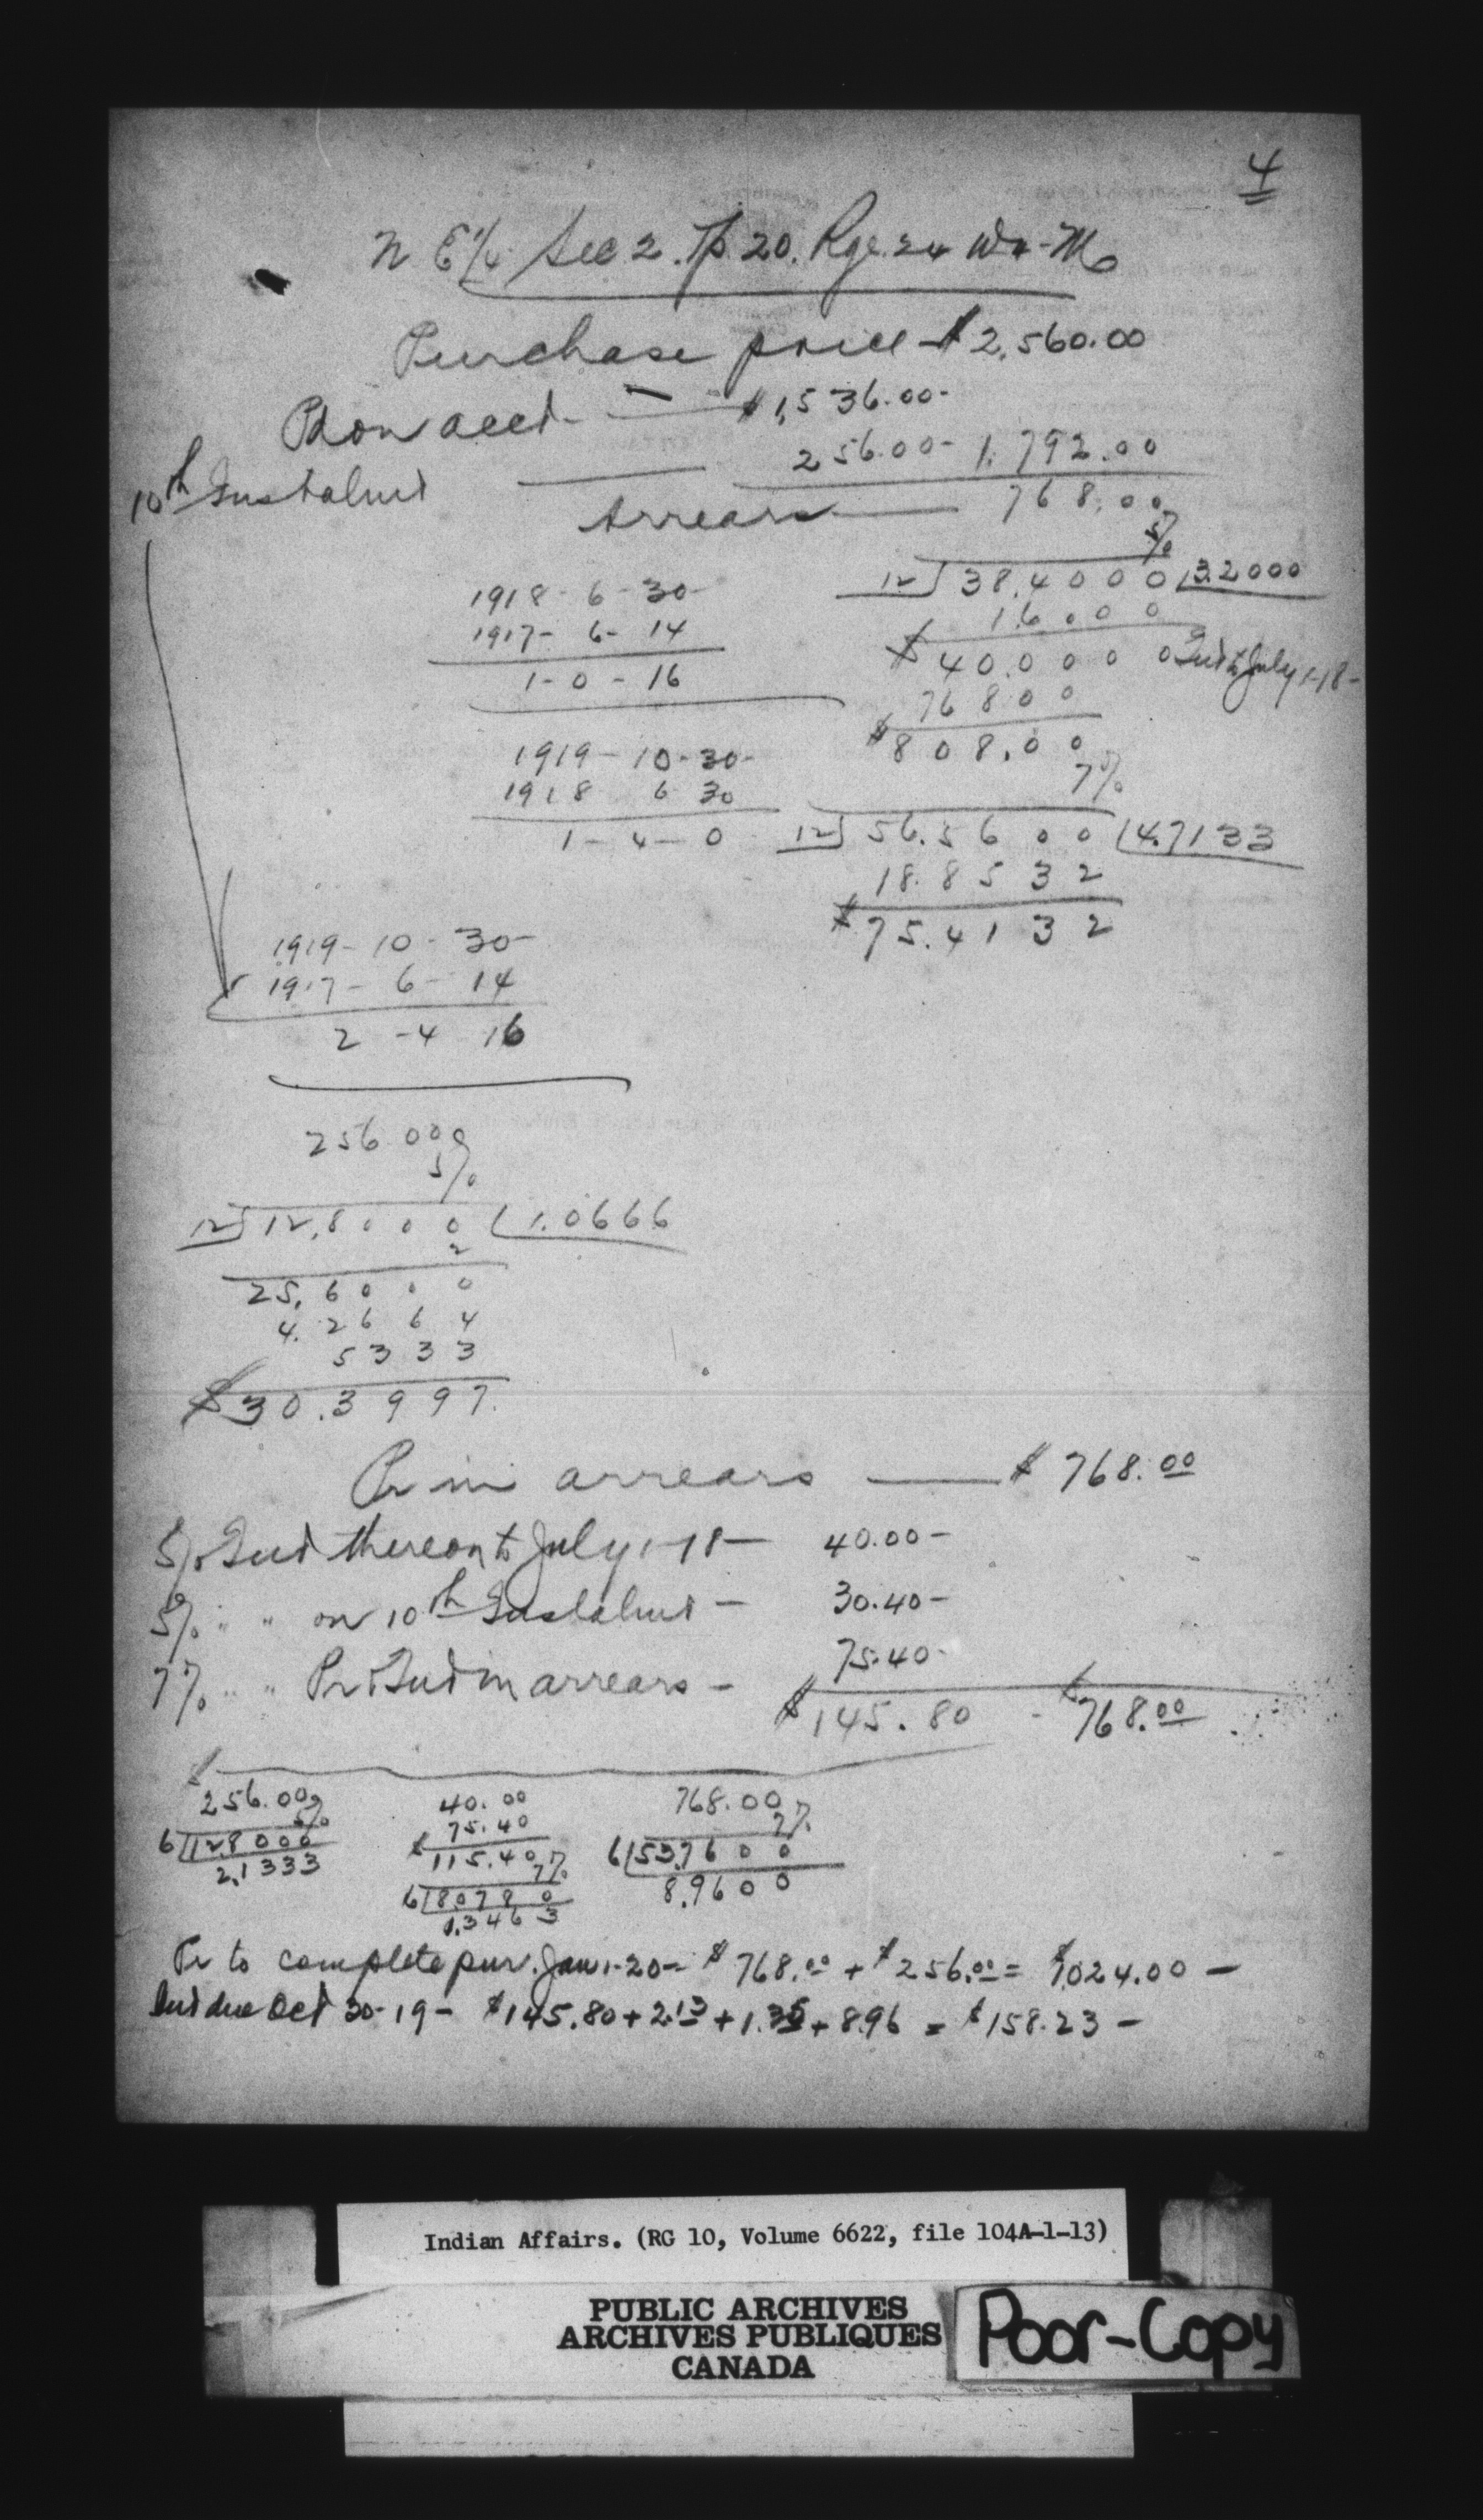 4
N E 1/4 Sec 2. Tp 20. Rge. 24 W4-M
Purchase price - $2,560.00
Pd on acct - $1,536.00-
10th Instalmt 256.00- 1,792.00
Arrears 768.00
5%
1918-6-30- 12 ) 38.4000 ( 3.2000
1917-6-14 1.6000
1-0-16 $40.0000 Int to July 1-18-
768 00
1919-10-30- $808.00
1918 6 30 7%
1-4-0 12 ) 56.5600 ( 4.7133
18.8532
$75.4132
1919-10-30-
1917-6-14
2-4 16
256.00
5%
12 ) 12.8000 ( 1.0666
2
25.6000
4.2664
5333
$30.3997
Pr in arrears $768.00
5% Int thereon to July 1-18- 40.00-
5% " " on 10th Instalmt - 30.40-
7% " " Pr & Int in arrears - 75.40-
$145.80 - $768.00
$256.00 40.00 768.00
5% 75.40 7%
6 ) 128000 $115.40 6 ) 53.7600
2.1333 7% 8.9600
6 ) 80780
1.3463
Pr to complete pur. Jan 1-20- $768.00 + $256.00 = $1024.00 -
Int due Oct 30-19- $145.80 + 2.13 + 1.35 + 8.96 = $158.23 -
Indian Affairs. (RG 10, Volume 6622, file 104A-1-13)
PUBLIC ARCHIVES
ARCHIVES PUBLIQUES
CANADA
Poor-Copy